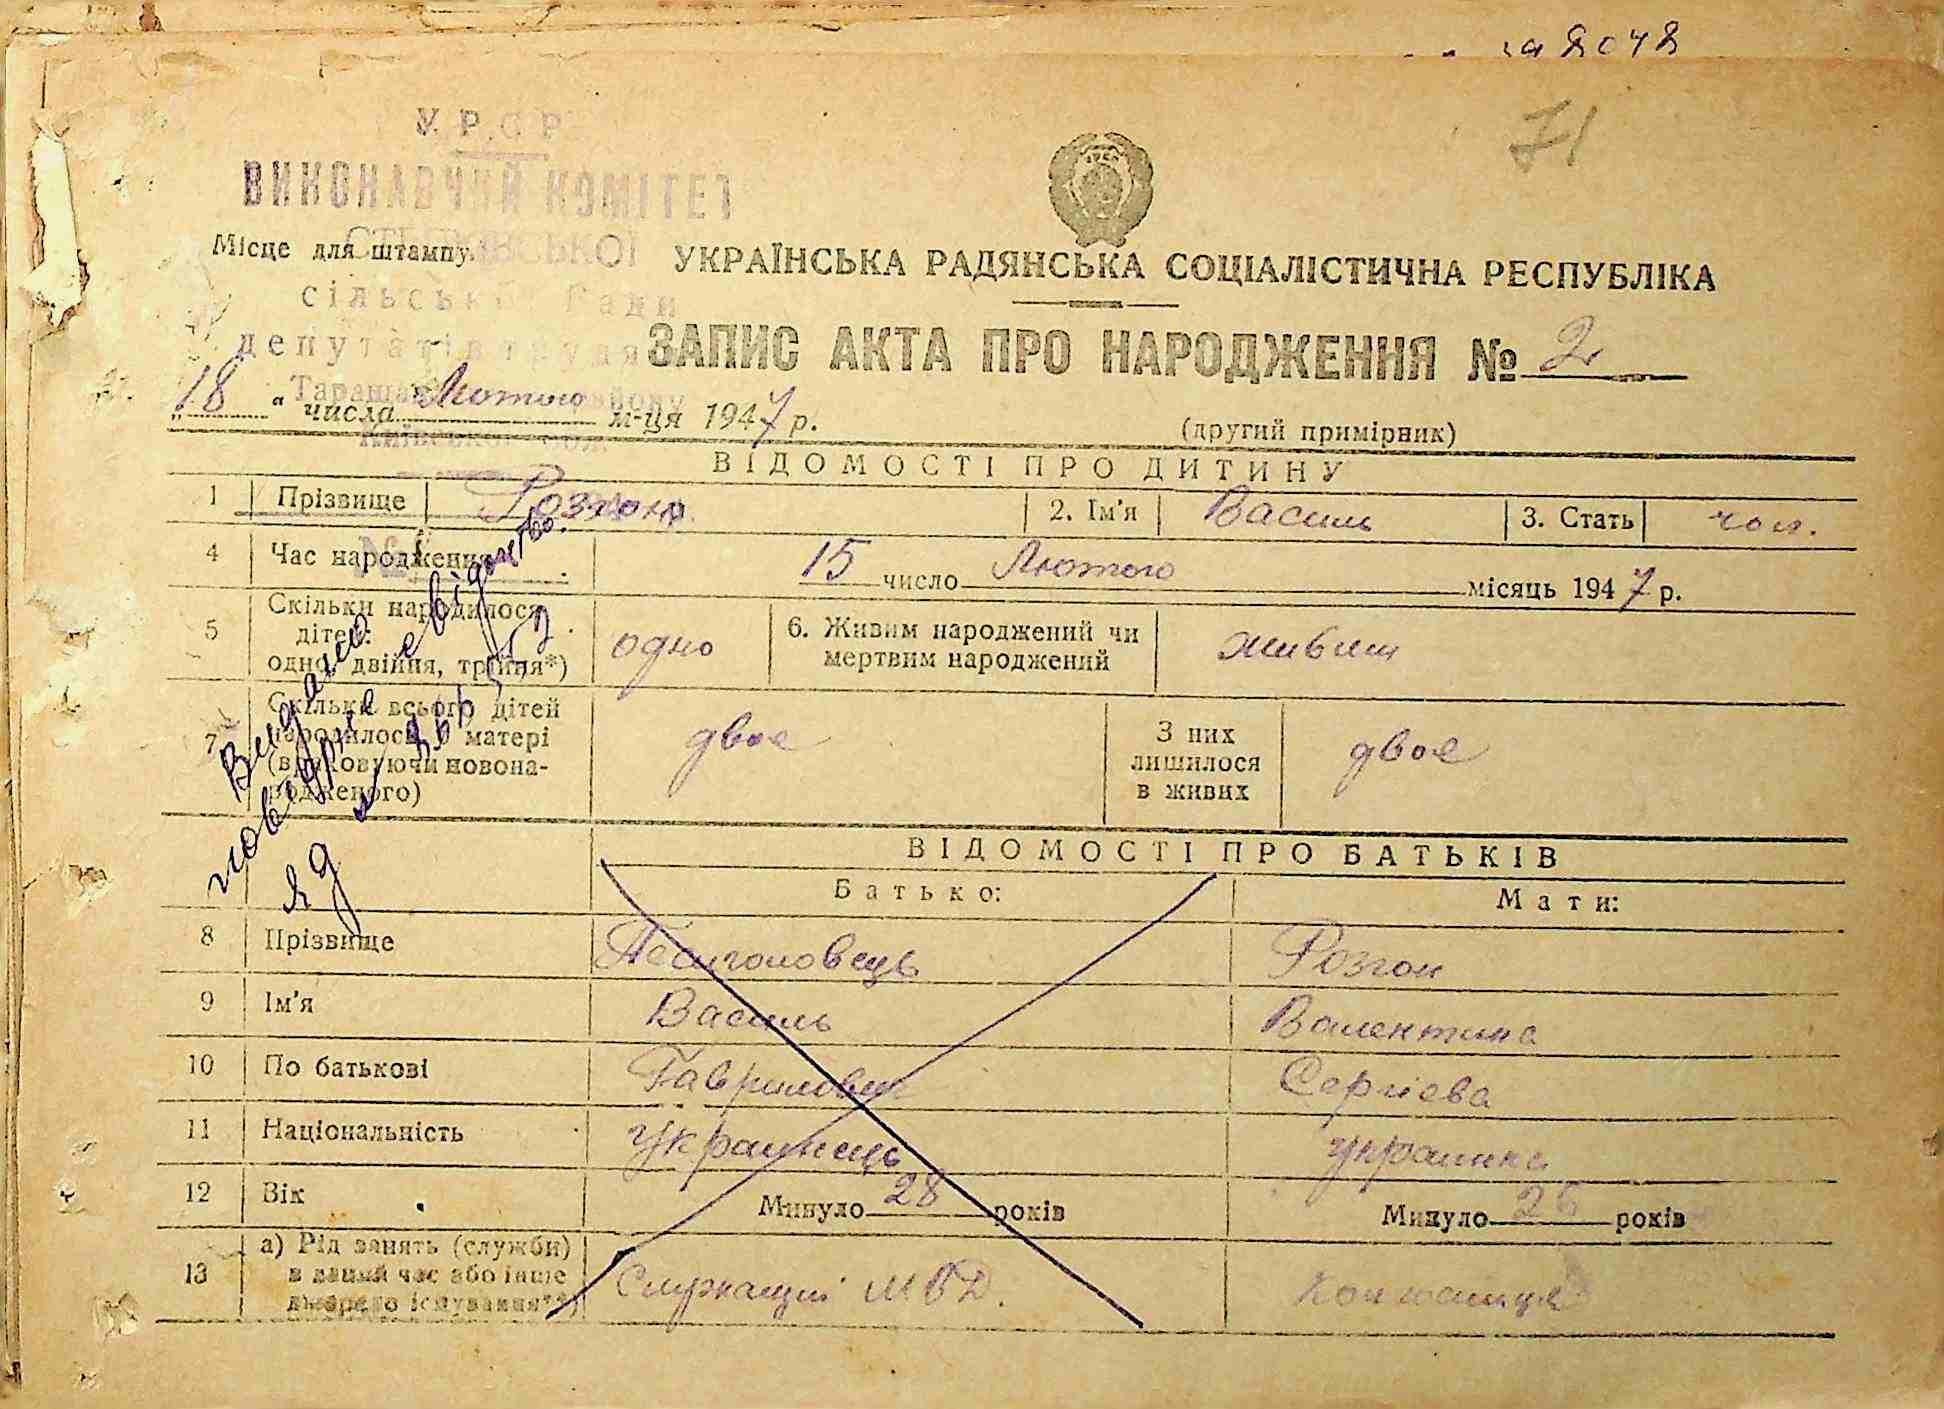 71
У. Р. С. Р.
ВИКОНАВЧИЙ КОМІТЕТ
Місце для штампу
УКРАЇНСЬКА РАДЯНСЬКА СОЦІАЛІСТИЧНА РЕСПУБЛІКА
сільської Ради
депутатів трудящ
ЗАПИС АКТА ПРО НАРОДЖЕННЯ № 2
„18“ числа Лютого м-ця 1947 р.
(другий примірник)
ВІДОМОСТІ ПРО ДИТИНУ
1 Прізвище Розгон 2. Ім'я Василь 3. Стать чол.
4 Час народження 15 число Лютого місяць 1947 р.
5 Скільки народилося дітей: одно, двійня, трійня*) одно 6. Живим народжений чи мертвим народжений живим
7 Скільки всього дітей народилося у матері (враховуючи новонародженого) двоє З них лишилося в живих двоє
Видано
повторне свідоцтво
ВІДОМОСТІ ПРО БАТЬКІВ
Батько: Мати:
8 Прізвище Песиголовець Розгон
9 Ім'я Василь Валентина
10 По батькові Гаврилович Сергієва
11 Національність Українець Українка
12 Вік Минуло 28 років Минуло років
13 а) Рід занять (службн) в даний час або інше джерело існування**) Служащий МВД.